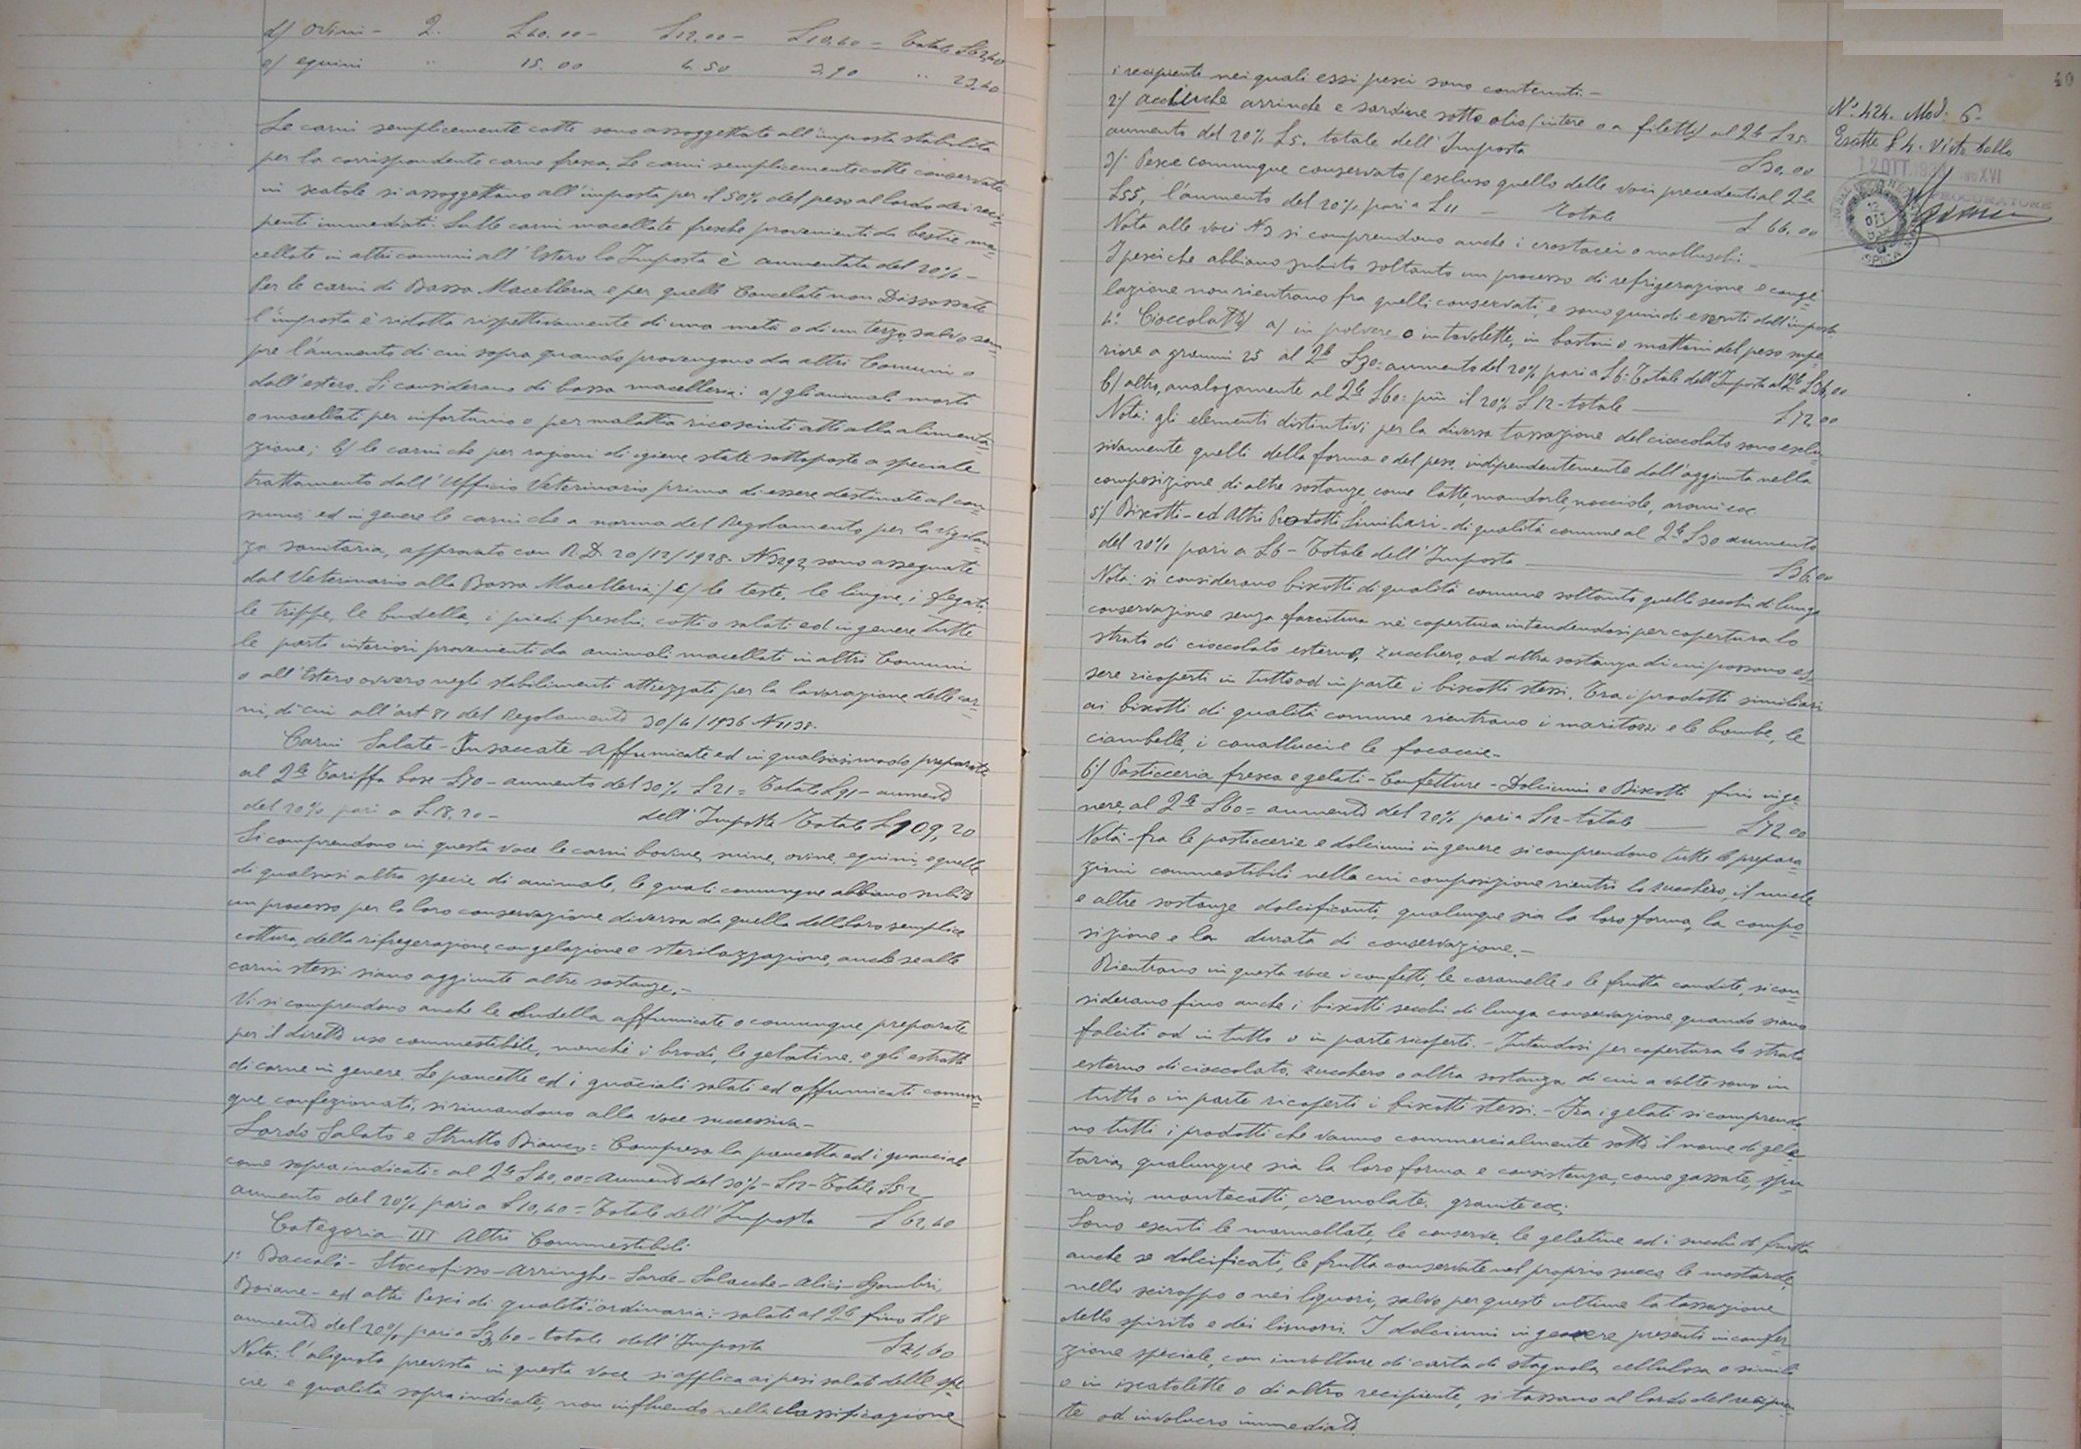 d/ ovini - 2. £40.00 - £12.00 - £10,40 = Totale £62,40
e/ equini " 15.00 4.50 3.90 " 23,40
Le carni semplicemente cotte sono assoggettate all'imposta stabilita
per la corrispondente carne fresca. Le carni semplicemente cotte conservate
in scatole si assoggettano all'imposta per il 50% del peso al lordo dei reci=
pienti immediati. Sulle carni macellate fresche provenienti da bestie ma=
cellate in altri comuni all'Estero la Imposta è aumentata del 20% -
Per le carni di Bassa Macelleria e per quelle Congelate non Dissossate
l'imposta è ridotta rispettivamente di una metà o di un terzo, salvo sem=
pre l'aumento di cui sopra quando provengono da altri Comuni o
dall'estero. Si considerano di bassa macelleria: a/ gli animali morti
o macellati per infortunio o per malattia riconosciuti atti alla alimenta=
zione; b/ le carni che per ragioni di igiene state sottoposte a speciale
trattamento dall'Ufficio Veterinario prima di essere destinate al con=
sumo, ed in genere le carni che a norma del Regolamento per la vigilan=
za sanitaria, approvato con R.D. 20/12/1928 - N 3298, sono assegnate
dal Veterinario alla Bassa Macelleria;/ c/ le teste, le lingue, i fegati
le trippe, le budella, i piedi freschi, cotti o salati ed in genere tutte
le parti interiori provenienti da animali macellati in altri Comuni
o all'Estero ovvero negli stabilimenti attrezzati per la lavorazione delle car=
ni, di cui all'art 81 del Regolamento 30/4/1936 N 1138.
Carni Salate - Insaccate - Affumicate ed in qualsiasi modo preparate
al Qle Tariffa base £70 - aumento del 30% £21 = Totale £91 - aumento
del 20% pari a £18,20 - dell'Imposta Totale £109,20
Si comprendono in questa voce le carni bovine, suine, ovine, equine, e quelle
di qualsiasi altra specie di animale, le quali comunque abbiano subito
un processo per la loro conservazione diversa da quella della loro semplice
cottura, della rifrigerazione, congelazione e sterilizzazione, anche se alle
carni stessi siano aggiunte altre sostanze. -
Vi si comprendono anche le budella affumicate o comunque preparate
per il diretto uso commestibile, nonchè i brodi, le gelatine, e gli estratti
di carne in genere. Le pancette ed i guanciali salati ed affumicati comun=
que confezionati, si rimandono alla voce successiva -
Lardo Salato e Strutto Bianco = Compresa la pancetta ed i guanciali
come sopra indicati = al Qle £40,00 = Aumento del 30% - £12 - Totale £52
aumento del 20% pari a £10,40 = Totale dell'Imposta £62,40
Categoria III Altri Commestibili
1° Baccalà - Stoccofisso - Arringhe - Sarde - Salacche - Alici - Sgombri,
Boiane - ed altri Pesci di qualità ordinaria: - salati al Qle fino £18
aumento del 20% pari a £3,60 - totale dell'Imposta £21,60
Nota: l'aliquota prevista in questa voce, si applica ai pesi salati delle spe=
cie e qualità sopra indicate, non influendo nella classificazione
i recipienti nei quali essi pesci sono contenuti. -
2°/ acciughe arrinche e sardine sotto olio (intere o a filetti) al Qle £25.
aumento del 20% £5. totale dell'Imposta £30,00
3°/ Pesce comunque conservato (escluso quello delle voci precedenti al Qle
£55, l'aumento del 20% pari a £11 - Totale £66,00
Nota alle voci N3 si comprendono anche i crostacei o molluschi -
I pesci che abbiano subito soltanto un processo di refrigerazione e conge=
lazione non rientrano fra quelli conservati, e sono quindi esenti dall'imposta.
4°. Cioccolatti/ a/ in polvere o in tavolette, in bastoni o mattoni del peso supe=
riore a grammi 25 al Qle £30 = aumento del 20% pari a £6 - Totale dell'Imposta al Qle £36,00
b/ altro, analogamente al Qle £60 = più il 20% £12 - totale £72.00
Nota: gli elementi distintivi per la diversa tassazione del cioccolato sono esclu=
sivamente quelli della forma e del peso, indipendentemente dall'aggiunta nella
composizione di altre sostanze, come latte, mandorle, nocciole, aromi ecc
5°/ Biscotti - ed Altri Prodotti Similiari - di qualità comune al Qle £30 aumento
del 20% pari a £6 - Totale dell'Imposta £36.00
Nota: si considerano biscotti di qualità comune soltanto quelli secchi di lunga
conservazione senza farcitura nè copertura intendendosi per copertura lo
strato di cioccolato esterno, zucchero, od altra sostanza di cui possono es=
sere ricoperti in tutto od in parte i biscotti stessi. Tra i prodotti similiari
ai biscotti di qualità comune rientrano i maritozzi e le bombe, le
ciambelle, i cavallucci e le focaccie. -
6°/ Pasticceria fresca e gelati - Confetture - Dolciumi e Biscotti fini in ge=
nere al Qle £60 = aumento del 20% pari a £12 - totale £72,00
Nota - fra le pasticcerie e dolciumi in genere si comprendono tutte le prepara=
zioni commestibili nella cui composizione rientri lo zucchero, il miele
e altre sostanze dolcificanti, qualunque sia la loro forma, la compo=
sizione e la durata di conservazione. -
Rientrano in questa voce i confetti, le caramelle e le frutta candite, si con=
siderano fino anche i biscotti secchi di lunga conservazione quando siano
falciti od in tutto o in parte ricoperti. - Intendosi per copertura lo strato
esterno di cioccolato, zucchero o altra sostanza di cui a volte sono in
tutto o in parte ricoperti i biscotti stessi. - Fra i gelati si comprendo
no tutti i prodotti che vanno commercialmente sotto il nome di gela=
teria, qualunque sia la loro forma e consistenza, come gassate, spu=
moni, mantecati, cremolate, granite ecc;
Sono esenti le marmellate, le conserve, le gelatine ed i succhi di frutta
anche se dolcificati, le frutta conservate nel proprio succo, le mostarde,
nello sciroppo o nei liquori, salvo per queste ultime la tassazione
dello spirito e dei liquori. I dolciumi in genere presenti in confe=
zione speciale, con involture di carta di stagnola, cellulosa o simili
o in iscatolette o di altro recipiente, si tassano al lordo del recipien=
te od involucro immediato.
40
N° 424. Mod. 6 -
Esatte £4. Visto bollo
12 OTT. 193 ANNO XVI
PROCURATORE